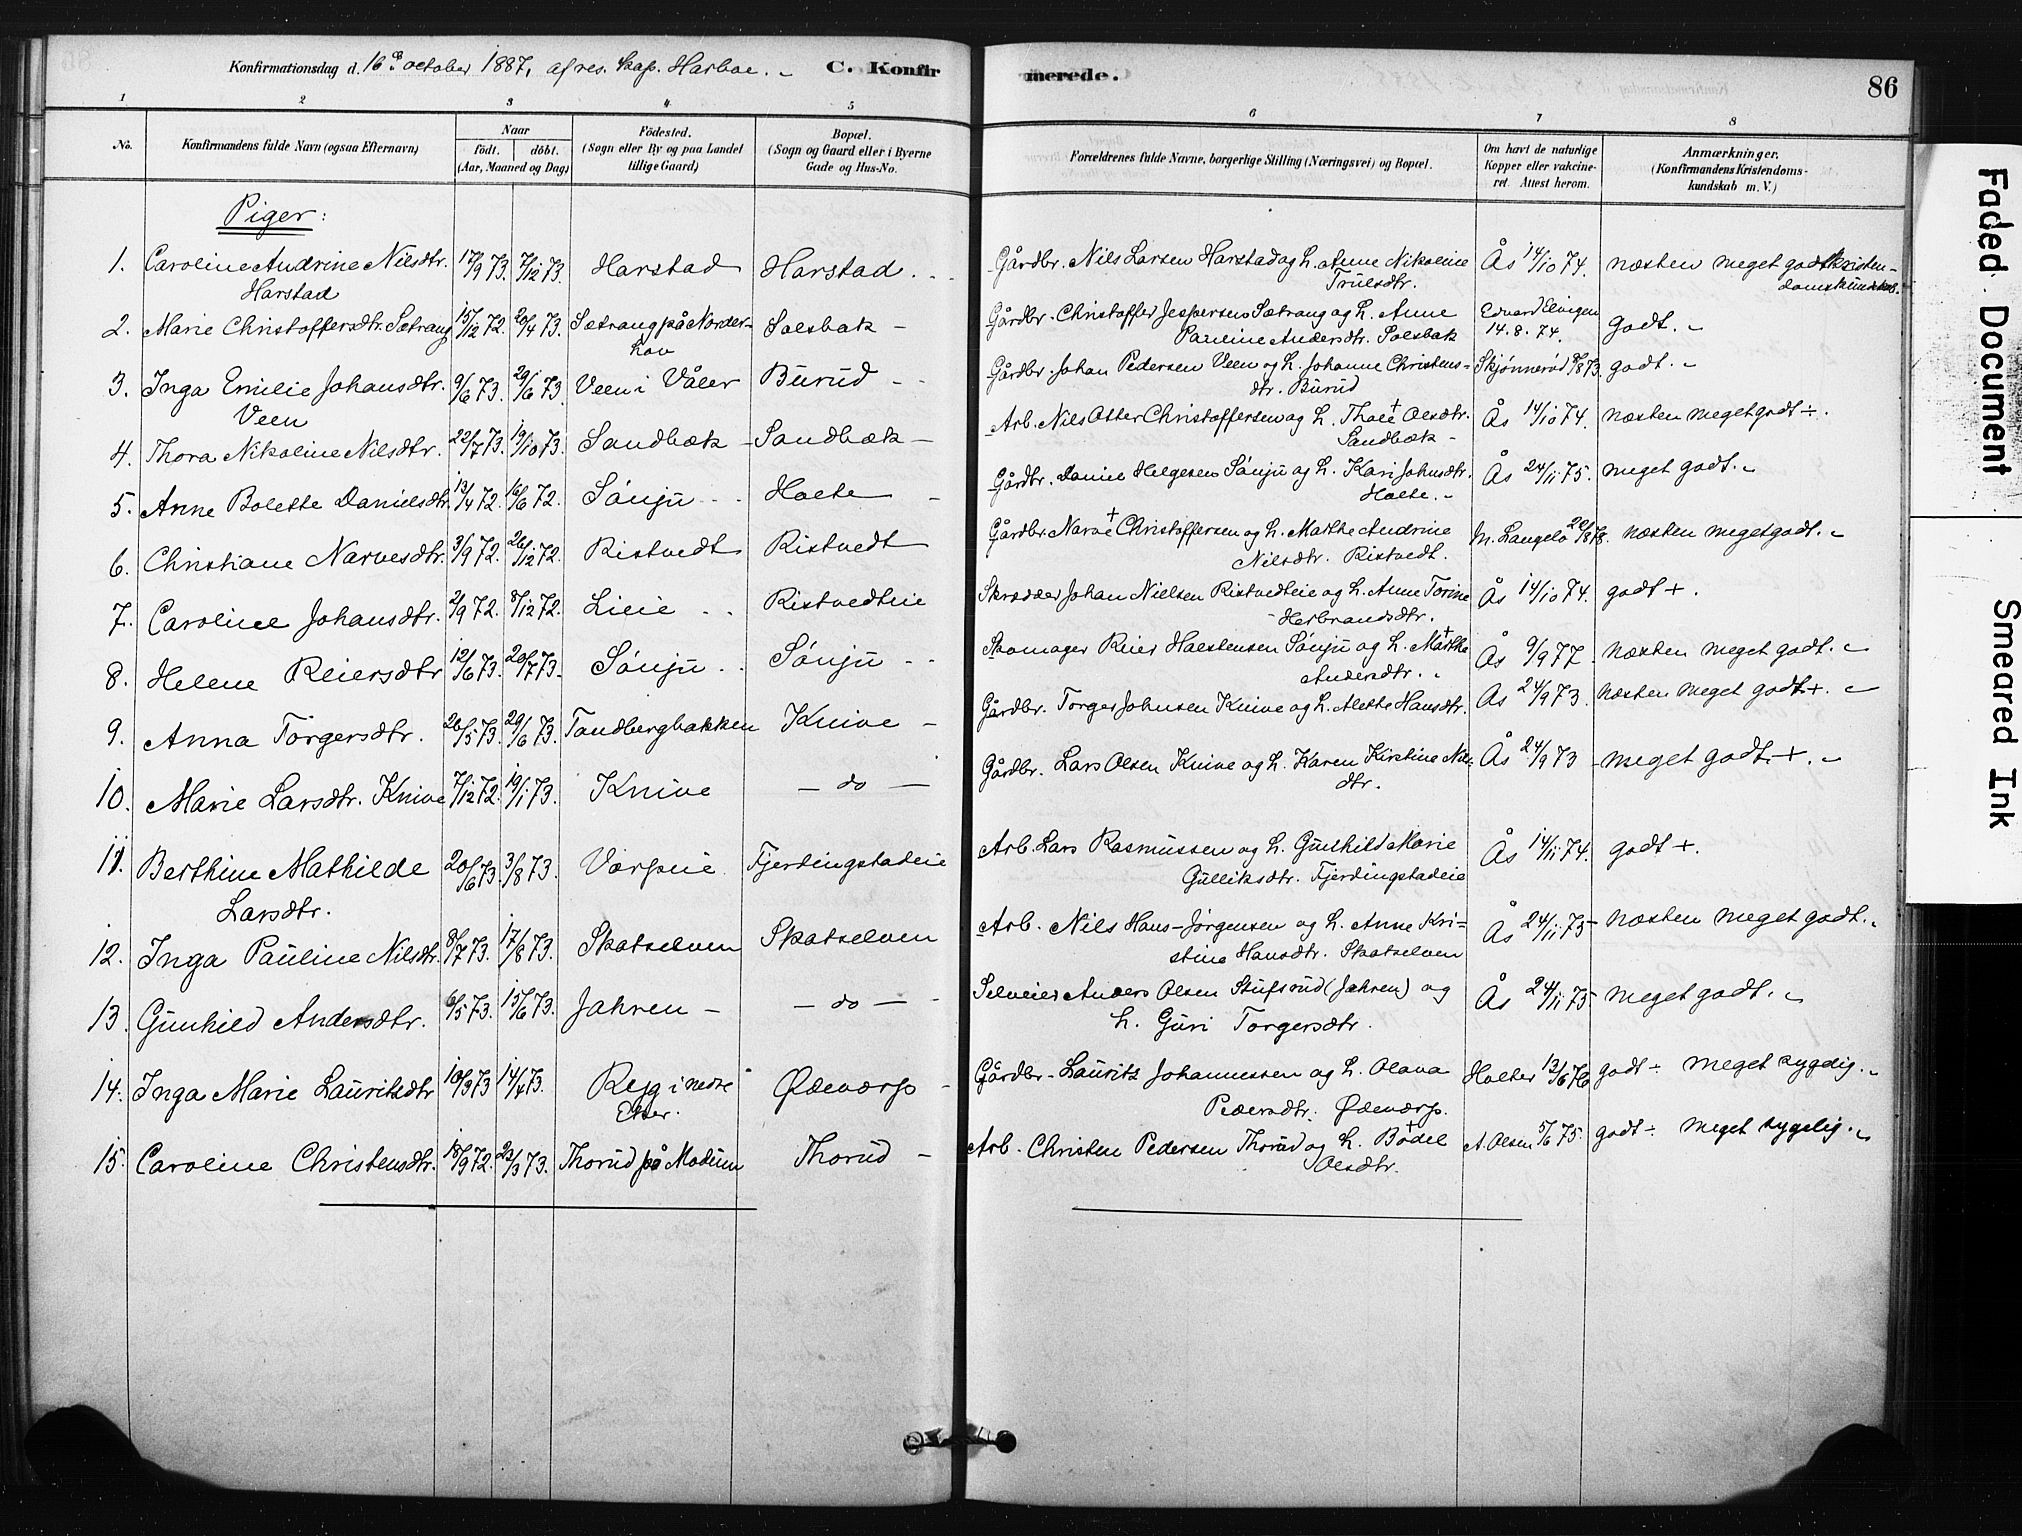 Konfirmationsdag d. 16de october 1887, af res. kap. Harboe. C. Konfirmerede. 86
1 2 3 4 5 6 7 8
No. Konfirmandens fulde Navn (ogsaa Efternavn) Naar födt. döbt. (Aar, Maaned og Dag) Födested. (Sogn eller By og paa Landet tillige Gaard) Bopæl. (Sogn og Gaard eller i Byerne Gade og Hus-No. Forældrenes fulde Navne, borgerlige Stilling (Næringsvei) og Bopæl. Om havt de naturlige Kopper eller vakcineret. Attest herom. Anmærkninger. (Konfirmandens Kristendomskundskab m. V.)
Piger:
1. Caroline Andrine Nilsdtr. 17/9 73. 7/12 73. Harstad Harstad. Gårdbr. Nils Larsen Harstad og h. Anne Nikoline Ås 14/10 74. næsten meget godt kristen-
Harstad Trulsdtr. domskundskab.
2. Marie Christoffersdtr. Sætrang 15/12 72. 20/4 73. Setrang på Norder- Solsbak - Gårdbr. Christoffer Jespersen Sætrang og h. Anne Edvard Elvigen godt.
hov Pauline Andersdtr. Solsbak 14.8.74.
3. Inga Emilie Johansdtr. 9/6 73. 29/6 73. Veen i Våler Burud - Gårdbr. Johan Pedersen Veen og h. Johanne Christens- Skjønnerød 8/8 73. godt.
Veen dtr. Burud
4. Thora Nikoline Nilsdtr. 22/7 73. 19/10 73. Sandbæk - Sandbæk - Arb. Nils Otter Christoffersen og h. Thale + Olsdtr. Ås 14/10 74. næsten meget godt ÷.
Sandbæk -
5. Anne Bolette Danielsdtr. 13/4 72. 16/6 72. Sönju Holte - Gårdbr. Daniel Helgesen Sönju og h. Kari Johnsdtr. Ås 24/11 75. meget godt.
Holte.
6. Christiane Narvesdtr. 3/9 72. 26/12 72. Ristvedt Ristvedt Gårdbr. Narve + Christoffersen og h. Marthe Andrine M. Langelö 20/8 78. næsten meget godt.
Nilsdtr. Ristvedt.
7. Caroline Johansdtr. 2/9 72. 8/12 72. Lieie Ristvedteie Skrædder Johan Nielsen Ristvedteie og h. Anne Torine Ås 14/10 74. godt +.
Herbrandsdtr.
8. Helene Reiersdtr 12/6 73. 20/7 73. Sönju Sönju Skomager Reier Halstensen Sönju og h. Marthe + Ås 9/9 77 næsten meget godt.
Andersdtr.
9. Anna Torgersdtr. 26/5 73. 29/6 73. Tandbergbakken Knive - Gårdbr. Torger Johnsen Knive og h. Alette Hansdtr. Ås 24/9 73. næsten meget godt +.
10. Marie Larsdtr. Knive 7/12 72. 19/1 73. Knive - do - Gårdbr. Lars Olsen Knive og h. Karen Kirstine Nils- Ås 24/9 73 meget godt +.
dtr.
11. Berthine Mathilde 20/6 73. 3/8 73. Vorpeie Fjerdingstadeie Arb. Lars Rasmussen og h. Gunhild Marie Ås 14/11 74. godt +.
Larsdtr. Gulliksdtr. Fjerdingstadeie
12. Inga Pauline Nilsdtr. 8/7 73. 17/8 73. Skotselven Skotselven Arb. Nils Hans-Jörgensen og h. Anne Kri- Ås 24/11 75 næsten meget godt.
stine Hansdtr. Skotselven
13. Gunhild Andersdtr. 6/5 73. 15/6 73. Jahren - - do - Selveier Anders Olsen Stufsrud (Jahren) og Ås 24/11 75 meget godt.
h. Guri Torgersdtr.
14. Inga Marie Lauritsdtr 10/3 73 14/4 73. Rygg i nedre Ødevorp - Gårdbr. Lauritz Johannessen og h. Olava Holter 13/6 76 godt ÷ meget sygelig.
Eker. Pedersdtr. Ødevorp.
15. Caroline Christensdtr. 18/9 72. 23/3 73. Thorud på Modum Thorud - Arb. Christen Pedersen Thorud og h. Bødel + A. Olsen 5/6 75. godt ÷ meget sygelig.
Olsdtr.
Faded Document
Smeared Ink